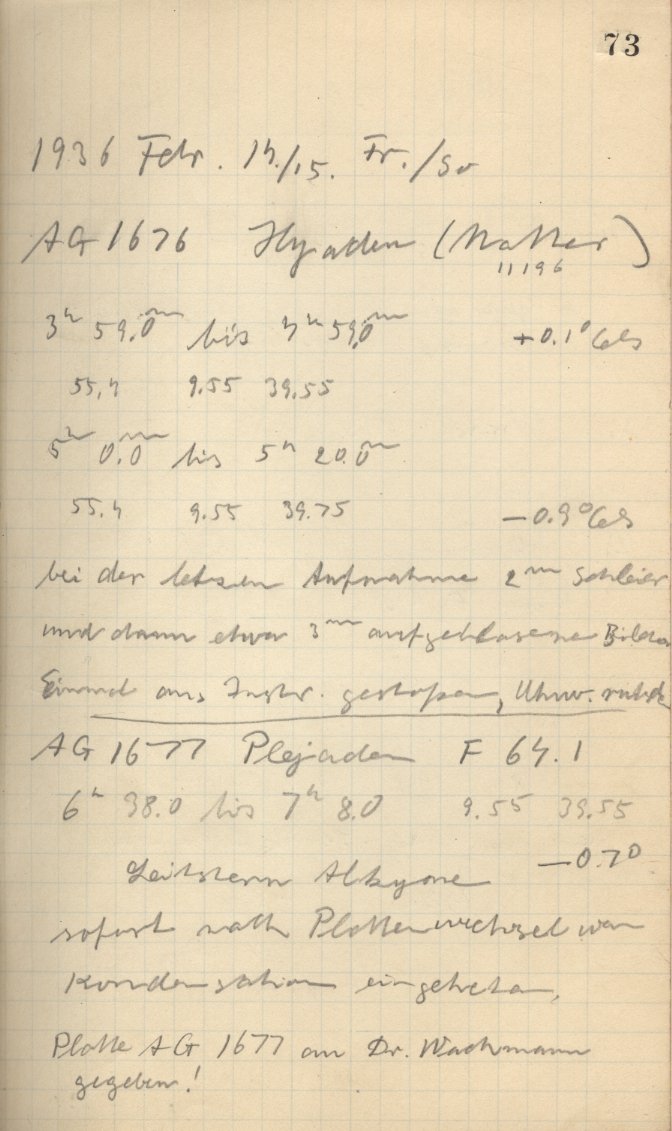 73
1936 Febr. 14./15. Fr./So
AG 1676 Hyaden (Natter)
11196
3h 59.0m bis 4h 59.0m +0.1° Cels
55,4 9.55 39.55
5h 0.0m bis 5h 20.0m
55.4 9.55 39.75 -0.9° Cels
bei der letzten Aufnahme 2m Schleier
und dann etwa 3m aufgeblasene Bilder
Einmal ans Instr. gestoßen, Uhrw. rutscht
AG 1677 Plejaden F 64.1
6h 38.0 bis 7h 8.0 9.55 39.55
-0.7°
Leitstern Alkyone
sofort nach Plattenwechsel war
Kondensation eingetreten,
Platte AG 1677 an Dr. Wachmann
gegeben!